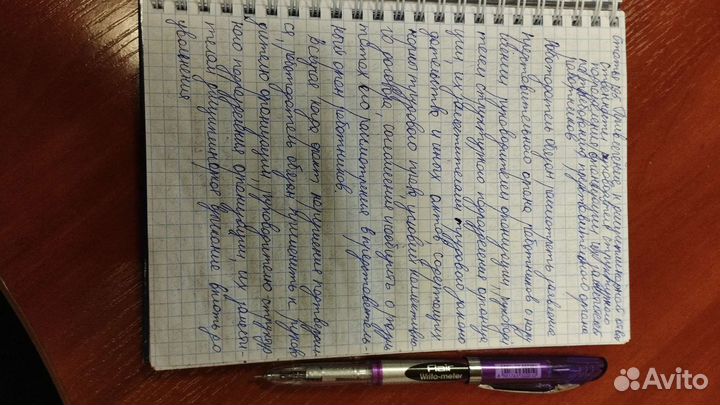 Статья 195. Привлечение к дисциплинарной ответ-
ственности руководителя организации, руководителя структурного
подразделения организации, их заместителей
по требованию представительного органа
работников
Работодатель обязан рассмотреть заявление
представительного органа работников о нару
шении руководителем организации, руководи
телем структурного подразделения организа
ции, их заместителями трудового законо
дательства и иных актов, содержащих
нормы трудового права, условий коллективно
го договора, соглашения и сообщить о резуль
татах его рассмотрения в представитель-
ный орган работников.
В случае когда факт нарушения подтвердил
ся, работодатель обязан применить к руково
дителю организации, руководителю структур
ного подразделения организации, их замести-
телям дисциплинарное взыскание вплоть до
увольнения
Flair
Writo-meter
Avito